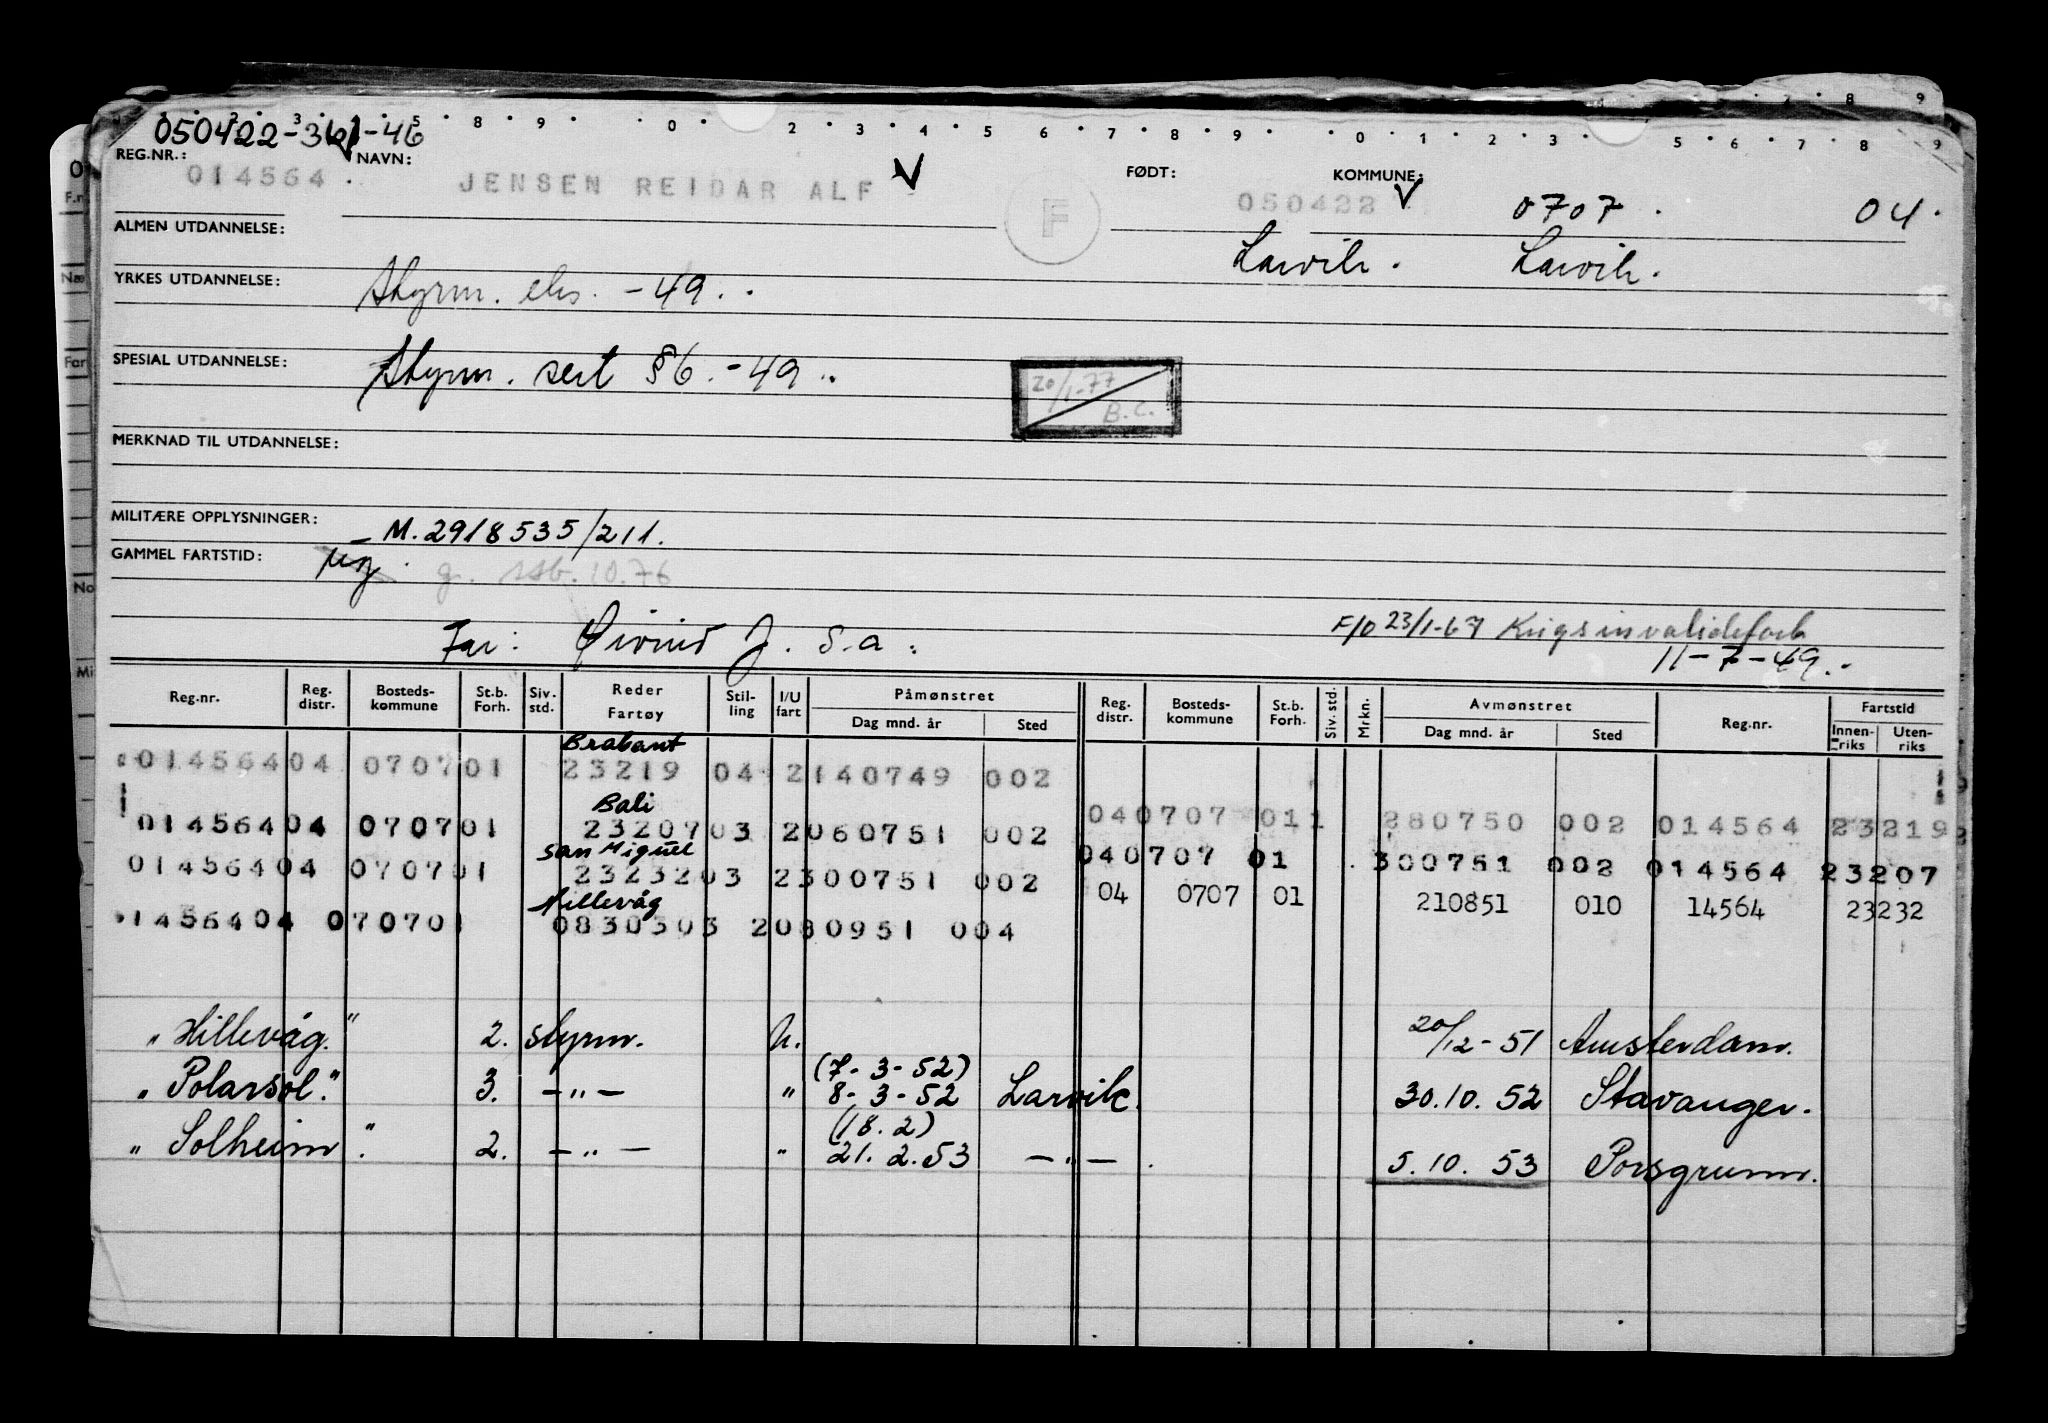 050422-361-46
REG.NR.: 014564. NAVN: JENSEN REIDAR ALF FØDT: 050422 KOMMUNE: 0707. 04.
F
Larvik. Larvik.
ALMEN UTDANNELSE:
YRKES UTDANNELSE: Styrm. eks. -49.
SPESIAL UTDANNELSE: Styrm. sert §6.-49.
20/1-77
B.C.
MERKNAD TIL UTDANNELSE:
MILITÆRE OPPLYSNINGER: M.2918535/211.
GAMMEL FARTSTID: g. 10.76
Far: Øivind J. s.a. F/O 23/1-67 Krigsinvalideforb
11-7-49.
Reg.nr. Reg. distr. Bosteds-kommune St.b. Forh. Siv. std. Reder Fartøy Stil-ling I/U fart Påmønstret Dag mnd. år Sted Reg. distr. Bosteds-kommune St.b. Forh. Siv. std. Mrkn. Avmønstret Dag mnd. år Sted Reg.nr. Fartstid Innen-riks Uten-riks
Brabant
014564 04 0707 01 23219 04 2 140749 002
Bali
040707 011 280750 002 014564 23219
014564 04 0707 01 23207 03 2 060751 002
San Miguel
040707 01 300751 002 014564 23207
014564 04 0707 01 23232 03 2 300751 002
04 0707 01 210851 010 14564 23232
Hillevåg
1456404 070701 08303 03 2 080951 004
"Hillevåg." 2. styrm. u. 20/12-51 Amsterdam.
(7-3-52)
"Polarsol." 3. -"- " 8-3-52 Larvik. 30.10.52 Stavanger.
(18.2)
"Solheim". 2. -"- " 21.2.53 -"-. 5.10.53 Porsgrunn.